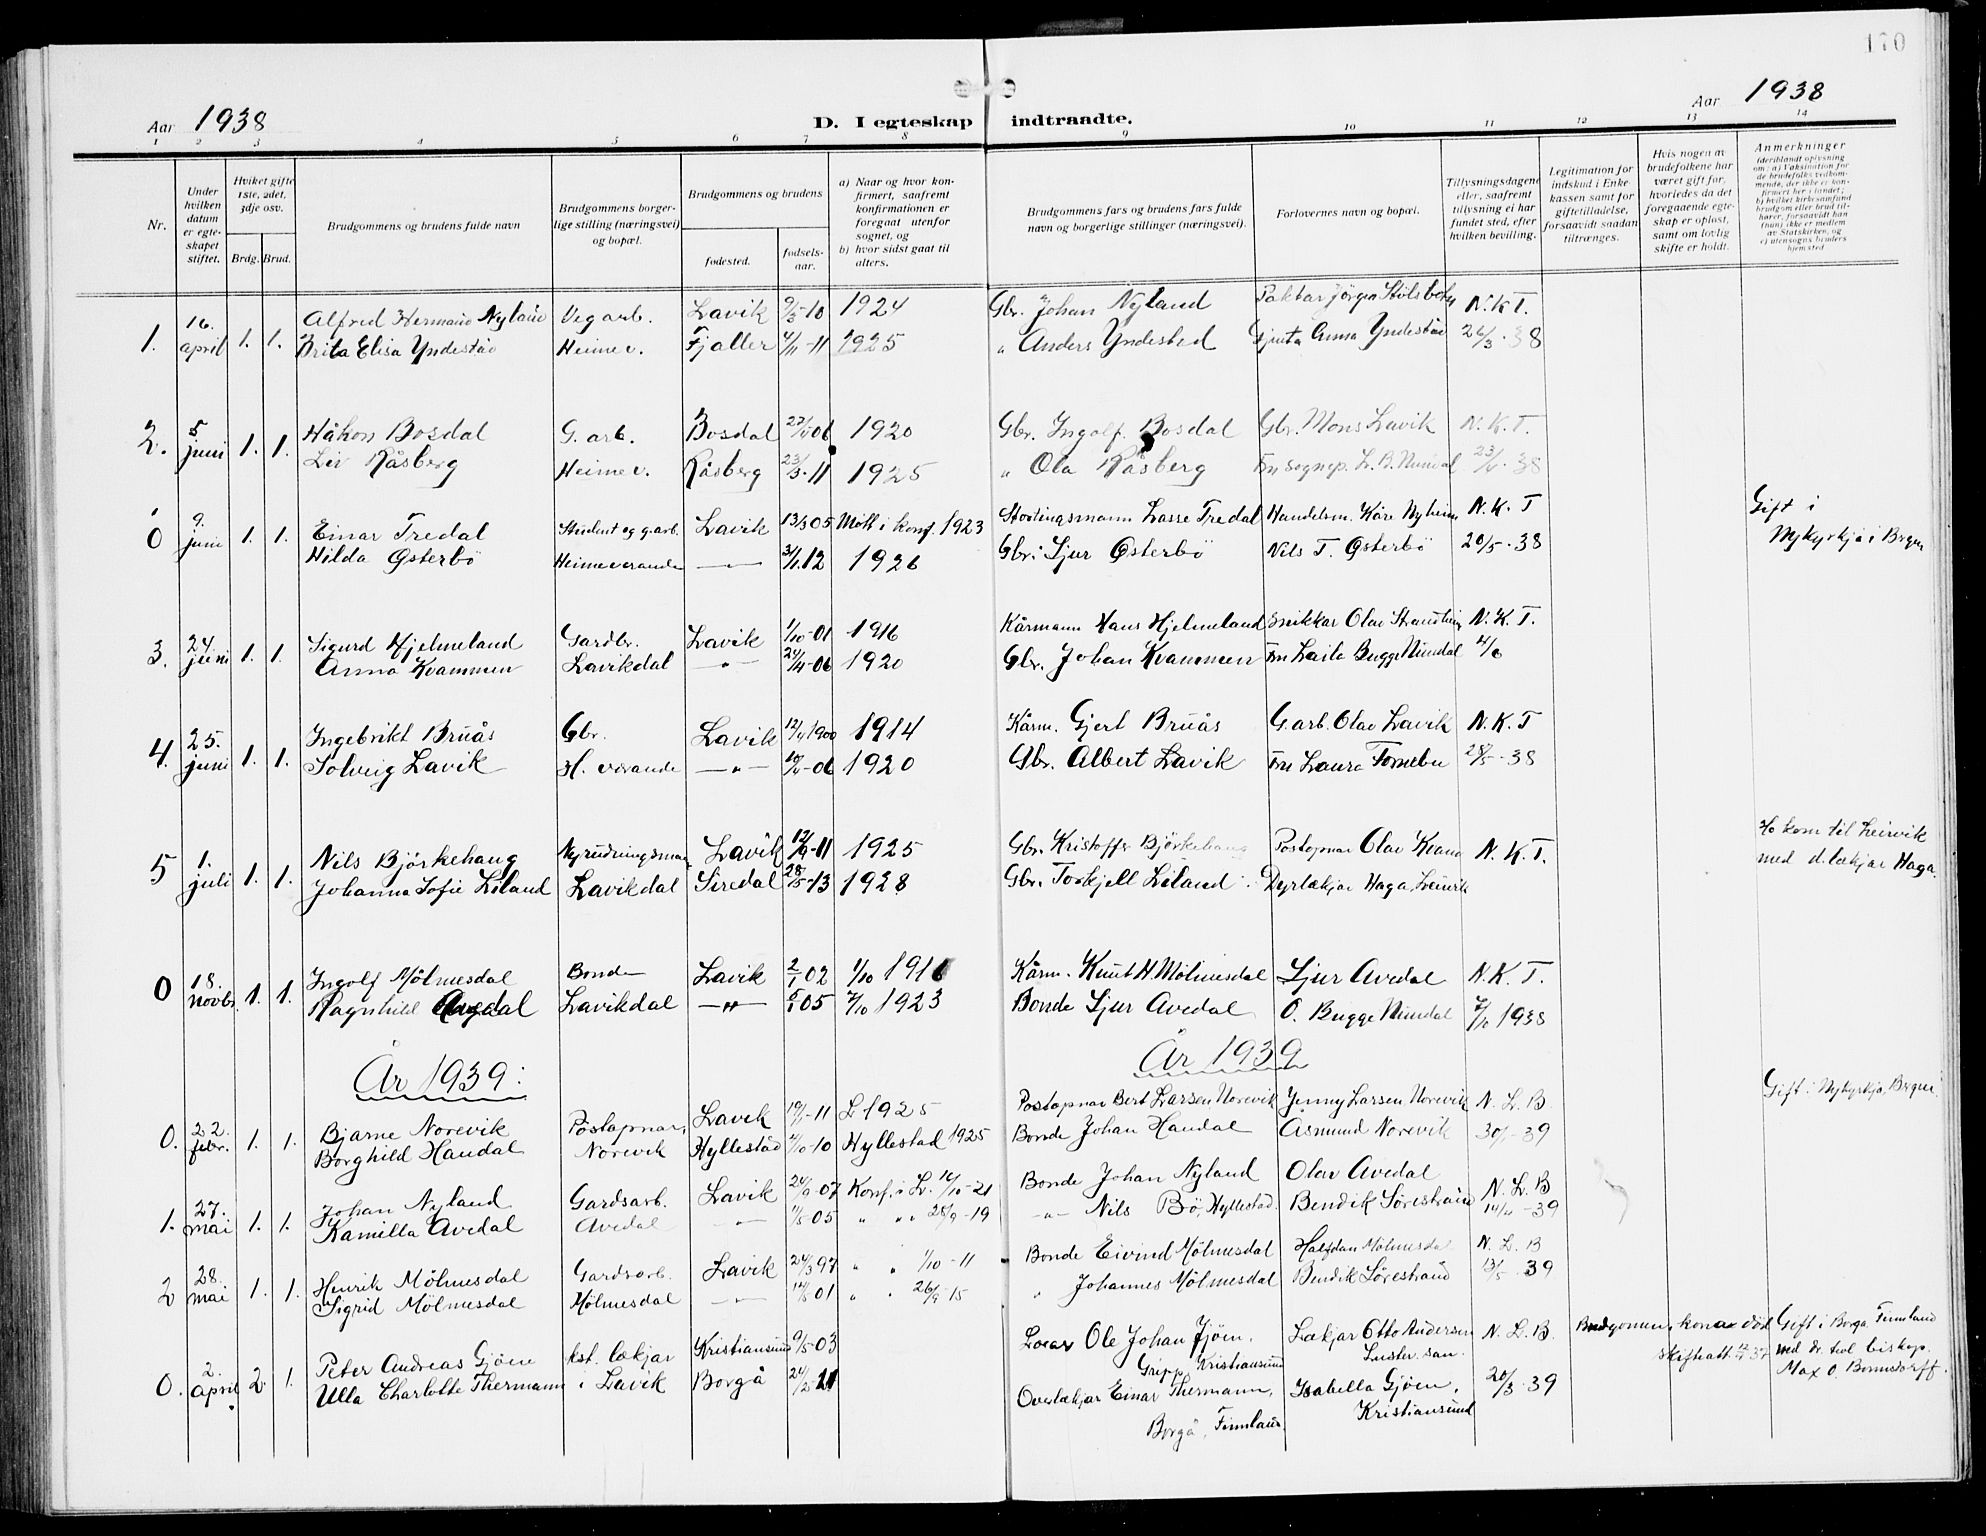 170
Aar 1938
D. I egteskap indtraadte.
Aar 1938
1 2 3 4 5 6 7 8 9 10 11 12 13 14
Nr.
Under hvilken datum er egteskapet stiftet.
Hviket gifte 1ste, 2det, 3dje osv.
Brdg. Brud.
Brudgommens og brudens fulde navn
Brudgommens borgerlige stilling (næringsvei) og bopæl.
Brudgommens og brudens
fødested.
fødselsaar.
a) Naar og hvor konfirmert, saafremt konfirmationen er foregaat utenfor sognet, og
b) hvor sidst gaat til alters.
Brudgommens fars og brudens fars fulde navn og borgerlige stillinger (næringsvei).
Forlovernes navn og bopæl.
Tillysningsdagene eller, saafremt tillysning ei har fundet sted, efter hvilken bevilling.
Legitimation for indskud i Enkekassen samt for giftetilladelse, forsaavidt saadan tiltrænges.
Hvis nogen av brudefolkene har været gift før, hvorledes da det foregaaende egteskap er opløst, samt om lovlig skifte er holdt.
Anmerkninger
(deriblandt oplysning om: a) Vaksination for de brudefolks vedkommende, der ikke er konfirmert her i landet; b) hvilket kirkesamfund brudgom eller brud tilhører, forsaavidt han (hun) ikke er medlem av Statskirken, og c) utensogns bruders hjemsted
1. 16. april 1. 1. Alfred Hermann Nyland Vegarb. Lavik 9/3-10 1924 Gbr. Johan Nyland Paktar Jörgen Stölsbotn N.K.T.
Brita Elisa Yndestad Heimev. Fjaller 4/11-11 1925 " Anders Yndestad Gjenta Anna Yndestad 26/3-38
2. 5 juni 1. 1. Håkon Bosdal G. arb. Bosdal 1920 Gbr. Ingolf Bosdal Gbr. Mons Lavik N.K.T.
Liv Råsberg Heimev. Råsberg 23/3-11 1925 " Ola Råsberg Fru sognep. L. B. Nundal 38
0 9. juni 1. 1. Einar Tredal Student og g.arb. Lavik 13/3 05 Mött i konf. 1923 Stortingsmann Lasse Tredal Handelsm. Kåre Nyheim N.K.T Gift i
Hilda Østerbö Heimeverande —"— 31/1.12 1926 Gbr. Sjur Østerbö Nils T. Østerbö 20/5-38 Nykyrkja i Brgen
3. 24. juni 1. 1. Sigurd Hjelmeland Gardbr. Lavik 1/10-01 1916 Kårmann Hans Hjelmeland Snikkar Olav Strandheim N.K.T.
Anna Kvammen Lavikdal —"— 24/4-06 1920 Gbr. Johan Kvammen Fru Laila Bugge Nundal 4/6
4. 25. juni 1. 1. Ingebrikt Bruås Gbr. Lavik 1900 1914 Kårm. Gjert Bruås G.arb. Olav Lavik N.K.T
Solveig Lavik H. værande —"— 06 1920 Gbr. Albert Lavik Fru Laura Fornebu 28/5-38
5 1. juli 1. 1. Nils Björkehaug Nyrudningsmann Lavik 12/9-11 1925 Gbr. Kristoffer Björkehaug Postopnar Olav N.K.T. Ho kom til Leirvik
Johanna Sofie Liland Lavikdal Siredal 28/5-13 1928 Gbr. Torkjell Liland Dyrlækjar Haga, Leirvik med d.lækjar Haga.
0 18. novbr. 1. 1. Ingolf Mölmesdal Bonde Lavik 2/1 02 1/10 1916 Kårm. Knut H. Mölmesdal Sjur Avedal N.K.T.
Ragnhild Avedal Lavikdal —"— 5/1 05 7/10 1923 Bonde Sjur Avedal O. Bugge Nundal 1938
År 1939: År 1939
0. 22. febr. 1. 1. Bjarne Norevik Postopnar, Lavik 11 L 1925 Postopnar Bert Larsen Norevik Jenny Larsen Norevik N.L.B. Gift i Nykyrkja, Brgen
Borghild Handal Norevik Hyllestad 10 Hyllestad 1925 Bonde Johan Handal Åsmund Norevik 30/1-39
1. 27. mai 1. 1. Johan Nyland Gardsarb. Lavik 24/9-07 Konf. i L. 16/10-21 Bonde Johan Nyland Olav Avedal N.L.B
Kamilla Avedal Avedal —"— 11/5-05 " " 28/9-19 —"— Nils Bö, Hyllestad. Bendik Sörestrand 14/4-39
2 28. mai 1. 1. Henrik Mölmesdal Gardsarb. Lavik 24/3 97 " " 1/10-11 Bonde Eivind Mölmesdal Halfdan Mölmesdal N.L.B
Sigrid Mölmesdal Mölmesdal —"— 14/8 01 " " 26/9-15 " Johannes Mölmesdal Bendik Sörestrand 13/5-39
0. 2. april 2 1. Peter Andreas Gjöen kst. lækjar Kristiansund 9/5-03 Ole Johan Gjöen, Lækjar Otto Andersen N.L.B. Brudgomens kona död Gift i Borgå Finnland
Grip, Kristiansund Luster san. Skifteatt. ved dr. teol biskop
Ulla Charlotte Thermann i Lavik Borgå Overlækjar Einar Thermann, Isabella Gjöen, 20/3-39 Max o. Bonnsdorff.
Borgå, Finnland. Kristiansund